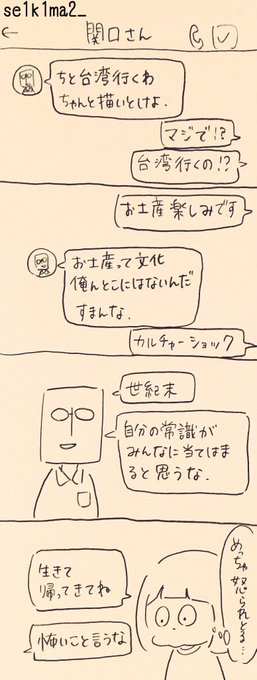 se1k1ma2_
関口さん
ちと台湾行くわ
ちゃんと描いとけよ.
マジで!?
台湾行くの!?
お土産楽しみです
お土産って文化
俺んとこにはないんだ
すまんな.
カルチャーショック
世紀末
自分の常識が
みんなに当てはま
ると思うな.
めっちゃ怒られとる…
生きて
帰ってきてね
怖いこと言うな